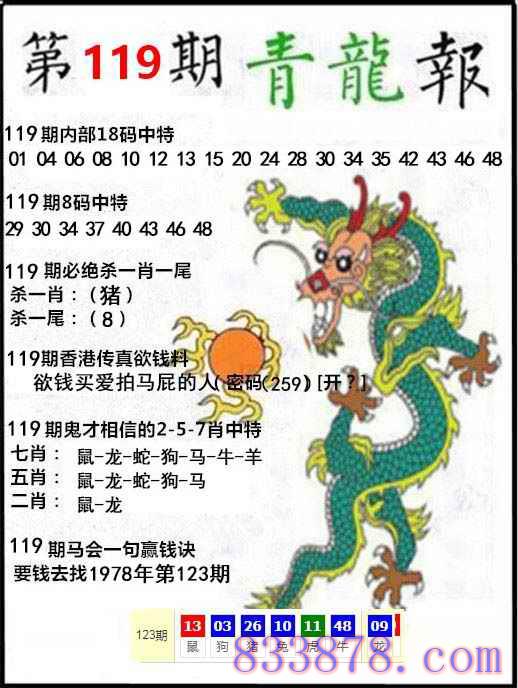 第119期青龍報
119期内部18码中特
01 04 06 08 10 12 13 15 20 24 28 30 34 35 42 43 46 48
119期8码中特
29 30 34 37 40 43 46 48
119期必绝杀一肖一尾
杀一肖：（猪）
杀一尾：（8）
119期香港传真欲钱料
欲钱买爱拍马屁的人(密码(259)[开?]
119期鬼才相信的2-5-7肖中特
七肖： 鼠-龙-蛇-狗-马-牛-羊
五肖： 鼠-龙-蛇-狗-马
二肖： 鼠-龙
119期马会一句赢钱诀
要钱去找1978年第123期
123期 13 03 26 10 11 48 09
鼠 狗 猪 兔 虎 牛 龙
833878.com